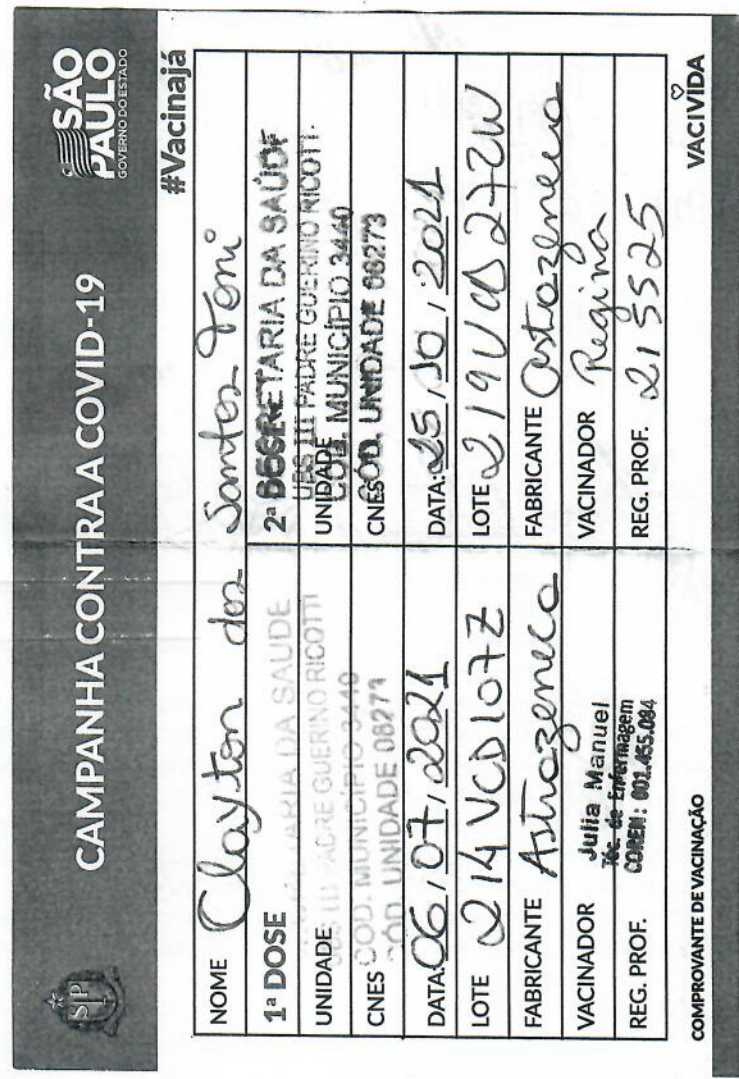 CAMPANHA CONTRA A COVID-19
SÃO PAULO
GOVERNO DO ESTADO
#Vacinajá
NOME Clayton dos Santos Toni
1ª DOSE
SECRETARIA DA SAÚDE
UNIDADE
UBS III PADRE GUERINO RICOTTI
CNES
COD. MUNICÍPIO 3440
COD. UNIDADE 08273
DATA: 06/07/2021
LOTE 214VCD107Z
FABRICANTE Astrazeneca
VACINADOR Julia Manuel
Téc. de Enfermagem
REG. PROF. COREN: 001.455.084
2ª DOSE
SECRETARIA DA SAÚDE
UNIDADE
UBS III PADRE GUERINO RICOTTI
CNES
COD. MUNICÍPIO 3440
COD. UNIDADE 08273
DATA: 25/10/2021
LOTE 219VCD272W
FABRICANTE Astrazeneca
VACINADOR Regina
REG. PROF. 215525
COMPROVANTE DE VACINAÇÃO
VACIVIDA